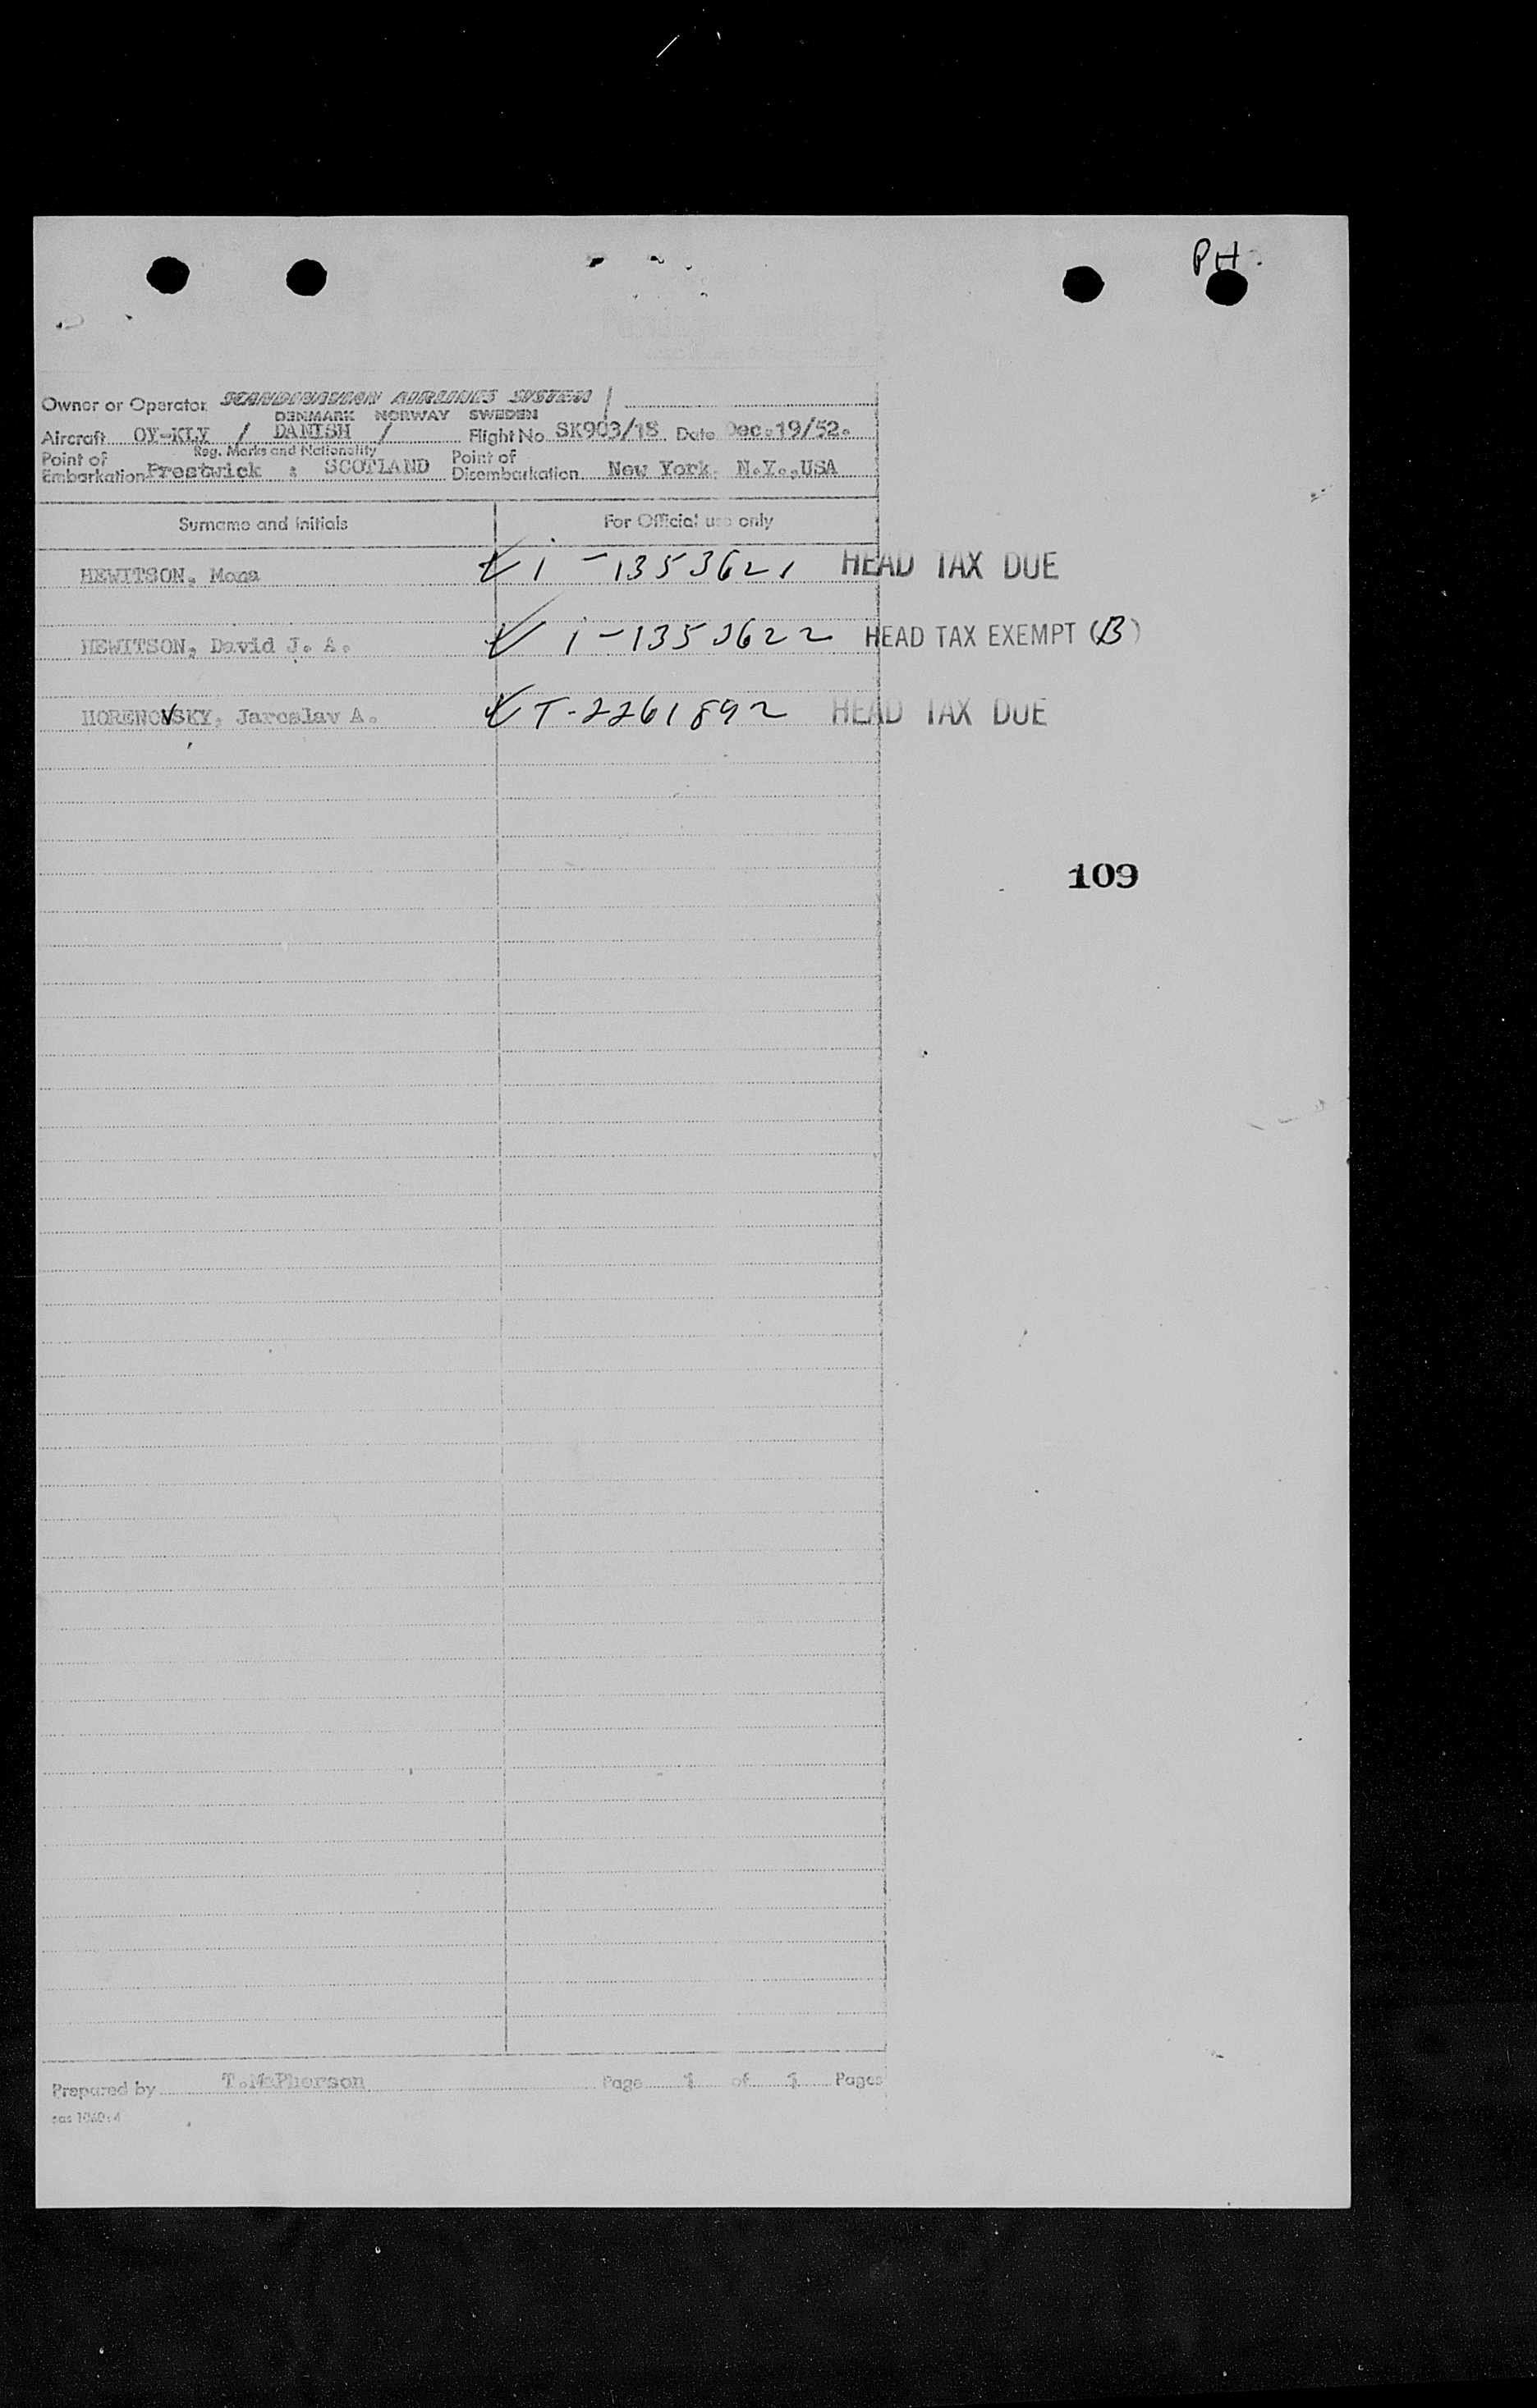 PH.
Owner or Operator SCANDINAVIAN AIRLINES SYSTEM
DENMARK NORWAY SWEDEN
Aircraft OY-KLY / DANISH / Flight No SK903/18 Date Dec.19/52.
Reg. Marks and Nationality
Point of Embarkation Prestwick : SCOTLAND Point of Disembarkation New York, N.Y.,USA
Surname and Initials For Official use only
HEWITSON, Mona i-1353621 HEAD TAX DUE
HEWITSON, David J. A. i-1353622 HEAD TAX EXEMPT (B)
HORENOVSKY, Jaroslav A. T-2261892 HEAD TAX DUE
109
Prepared by T.McPherson Page 1 of 1 Pages